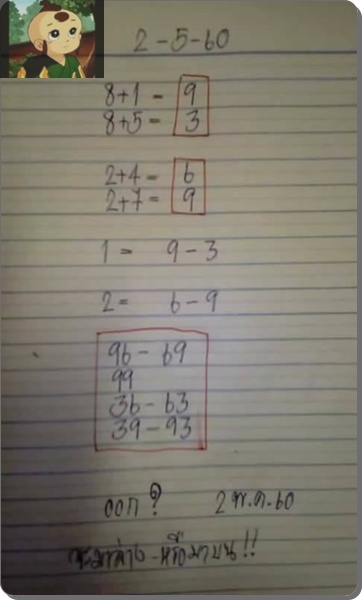 2-5-60
8+1 = 9
8+5 = 3
2+4 = 6
2+7 = 9
1 = 9-3
2 = 6-9
96-69
99
36-63
39-93
ออก? 2 พ.ค.60
จะมาล่าง-หรือมาบน!!